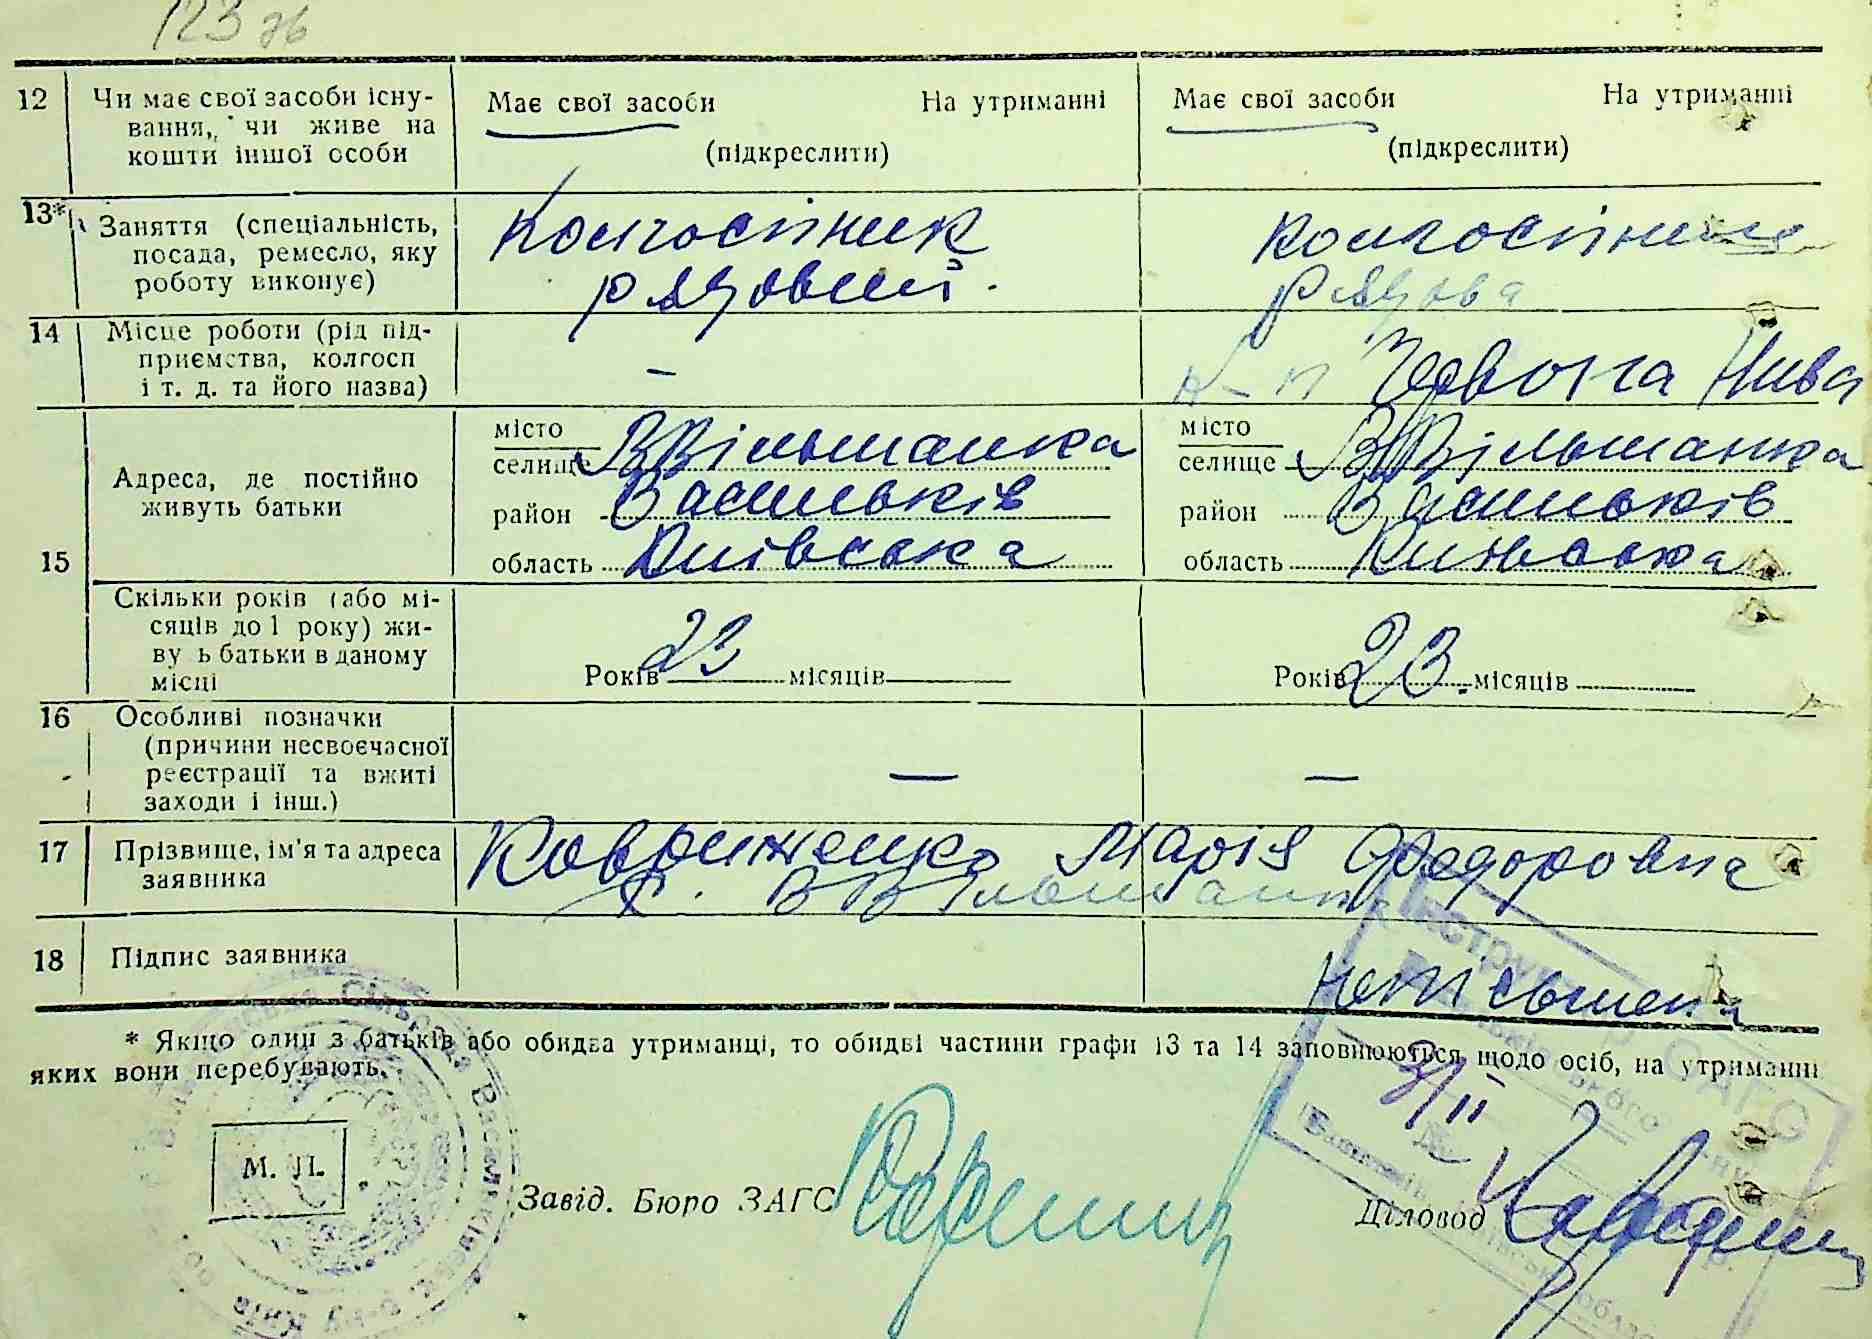 123 зв
12 Чи має свої засоби існу-
вання, чи живе на
кошти іншої особи
Має свої засоби На утриманні
(підкреслити)
Має свої засоби На утриманні
(підкреслити)
13* Заняття (спеціальність,
посада, ремесло, яку
роботу виконує)
Колгоспник
рядовий.
Колгоспниця
рядова
14 Місце роботи (рід під-
приємства, колгосп
і т. д. та його назва)
—
к-п Червона Нива
15 Адреса, де постійно
живуть батьки
місто
селище ВВільшанка
район Васильків
область Київська
місто
селище ВВільшанка
район Васильків
область Київська
Скільки років (або мі-
сяців до 1 року) жи-
ву ь батьки в даному
місці
Років 23 місяців
Років 23. місяців
16 Особливі позначки
(причини несвоєчасної
реєстрації та вжиті
заходи і інш.)
— —
17 Прізвище, ім'я та адреса
заявника
Ковриженко Марія Федоровна
с. ВВільшанка
18 Підпис заявника
неписьмена
* Якщо один з батьків або обидва утриманці, то обидві частини графи 13 та 14 заповнюються щодо осіб, на утриманні
яких вони перебувають.
3/II
М. П.
Завід. Бюро ЗАГС
Діловод
Інструктор ЗАГС